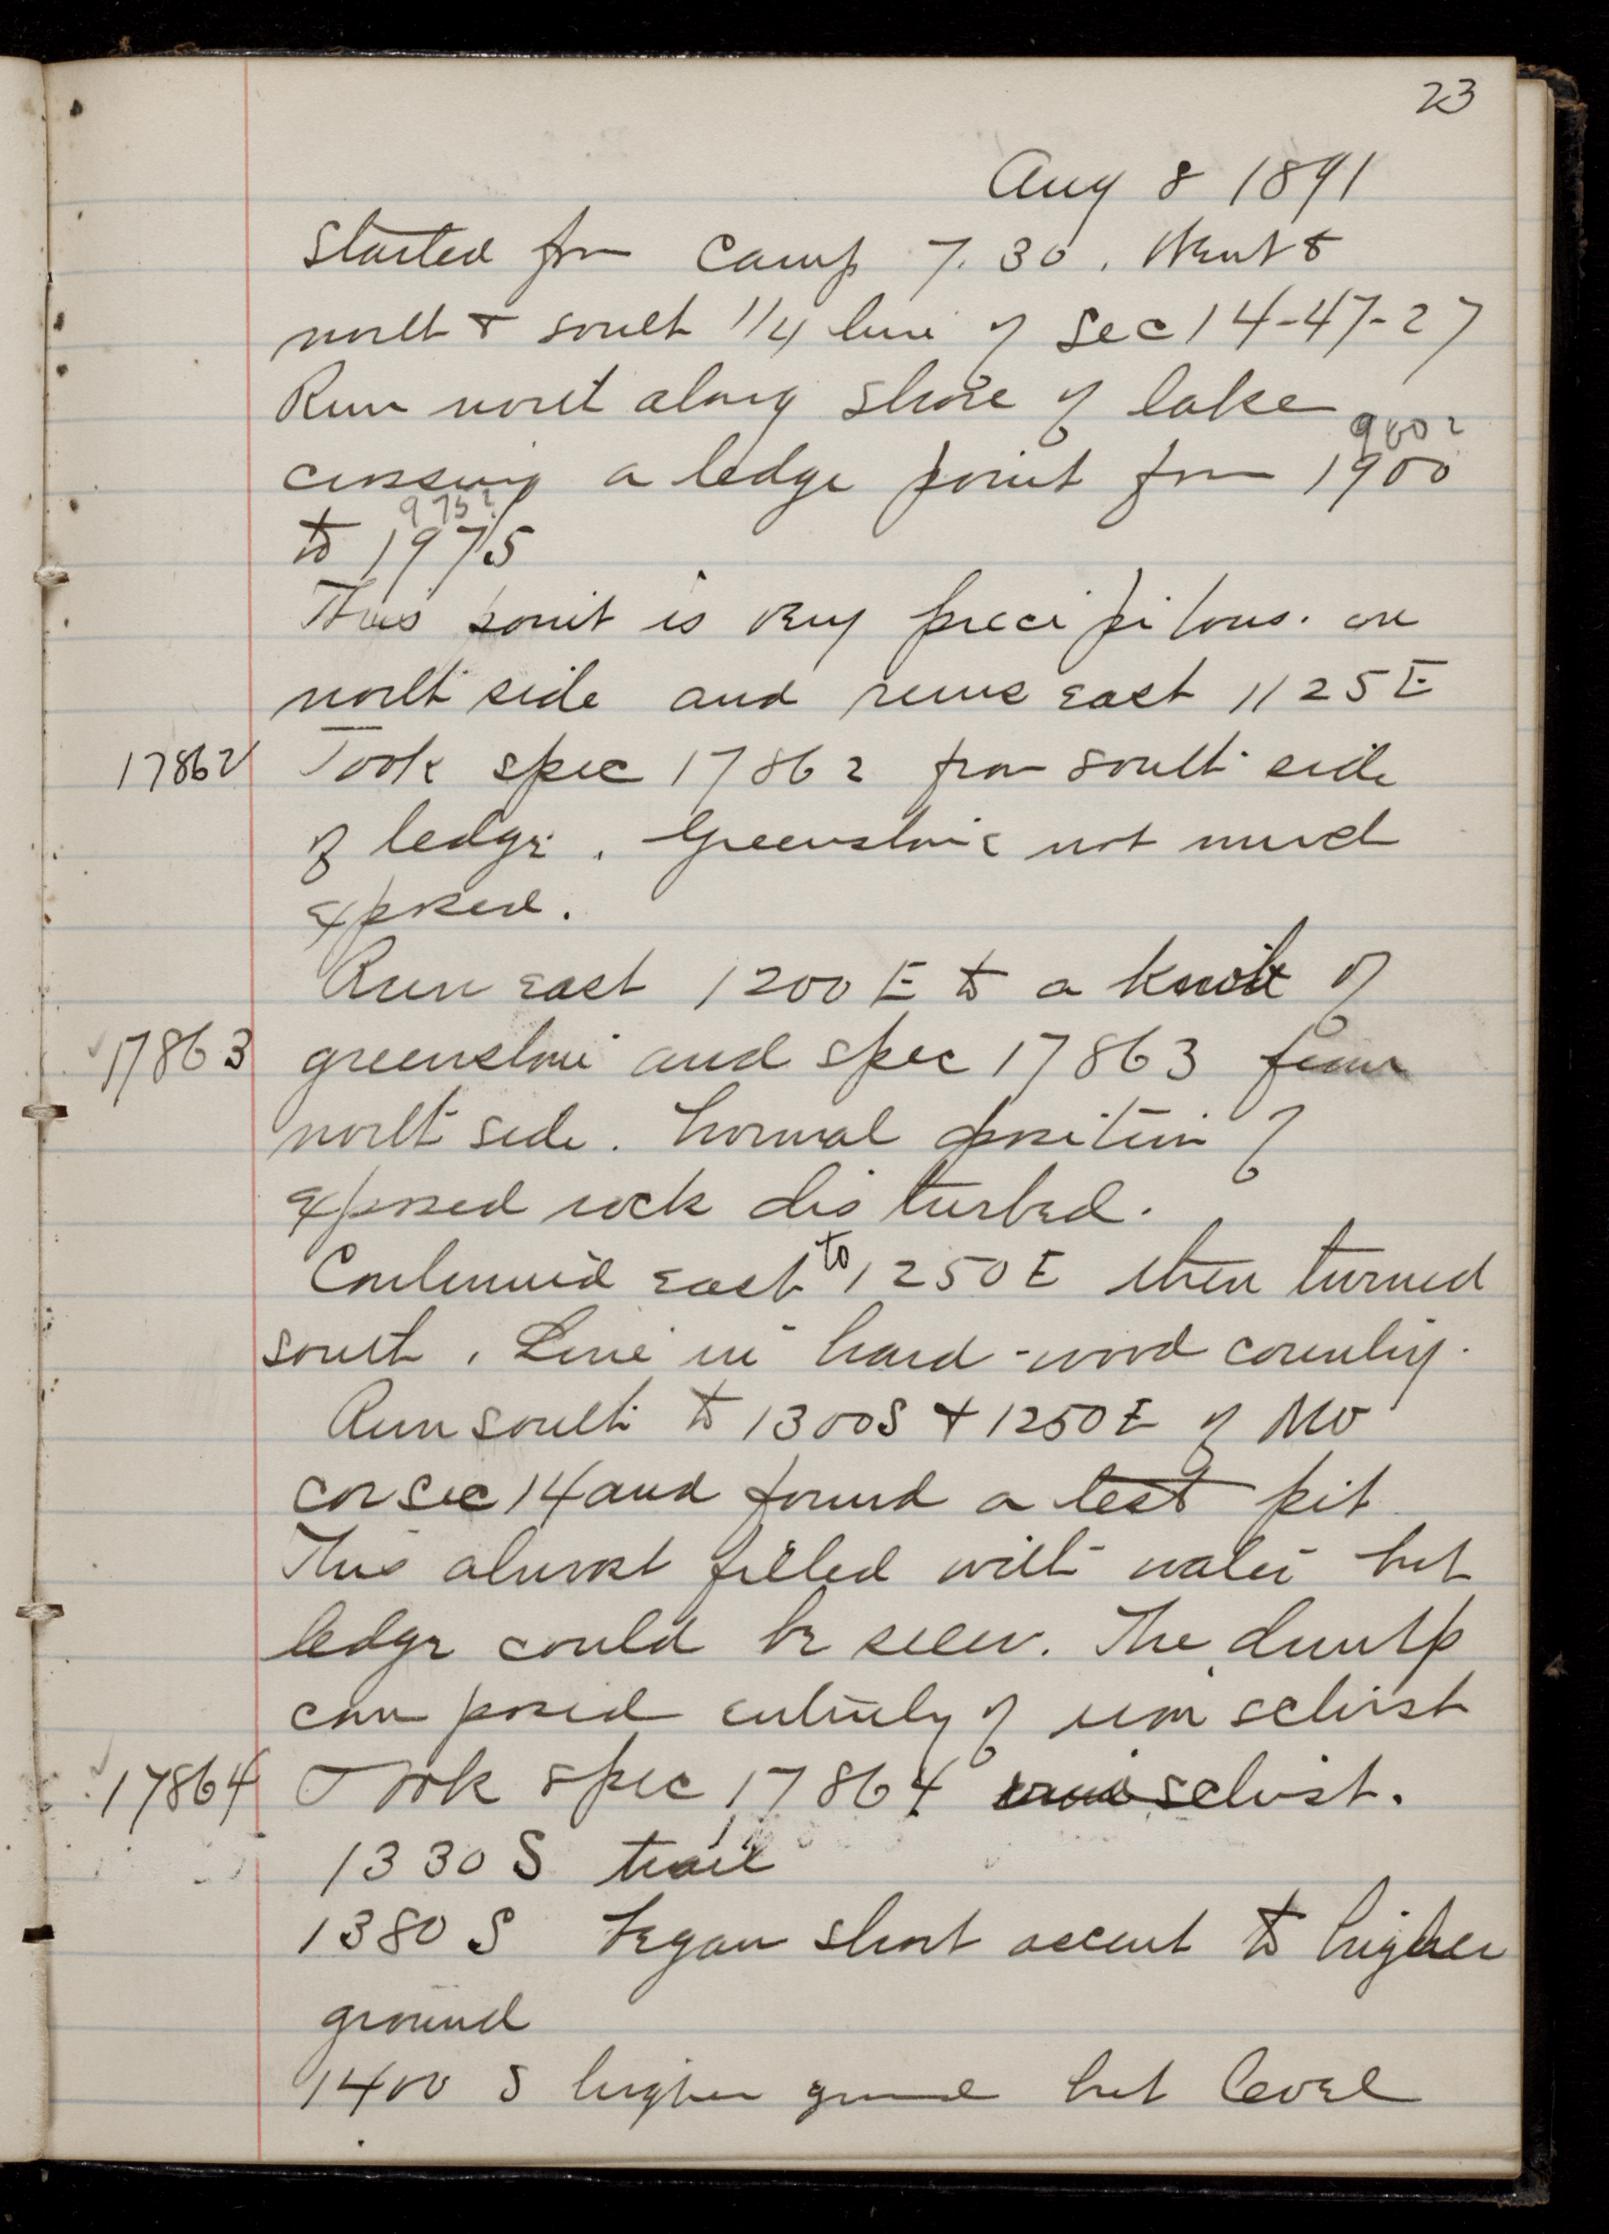 23
Aug 8 1891
Started from Camp 7.30. Went to
north & south 1/4 line of Sec 14-47-27
Run north along shore of lake
900?
crossing a ledge point from 1900
975?
to 1975
This point is very precipitous. on
north side and runs east 1125 E
17862 Took spec 17862 from south side
of ledge. Greenstone not much
exposed.
Run east 1200 E to a knob of
17863 greenstone and spec 17863 from
north side. Normal position of
exposed rock disturbed.
Continued east to 1250 E then turned
south. Line in hard-wood country.
Run south to 1300S & 1250E of NW
cor sec 14 and found a test pit
This almost filled with water but
ledge could be seen. The dump
composed entirely of iron schist
17864 Took spec 17864 schist.
1330 S trail
1380 S began short ascent to higher
ground
1400 S higher ground but level